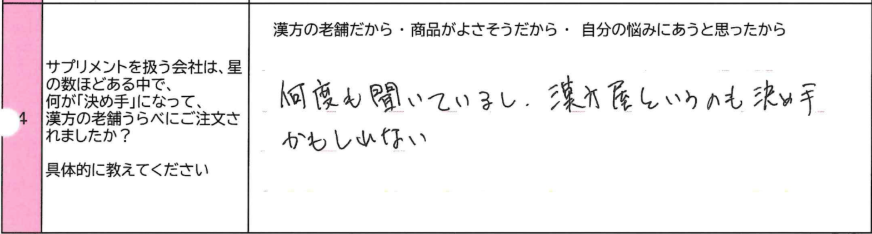 漢方の老舗だから ・ 商品がよさそうだから ・ 自分の悩みにあうと思ったから
4
サプリメントを扱う会社は、星
の数ほどある中で、
何が「決め手」になって、
漢方の老舗うらべにご注文さ
れましたか？
具体的に教えてください
何度も聞いているし、漢方屋というのも決め手
かもしれない